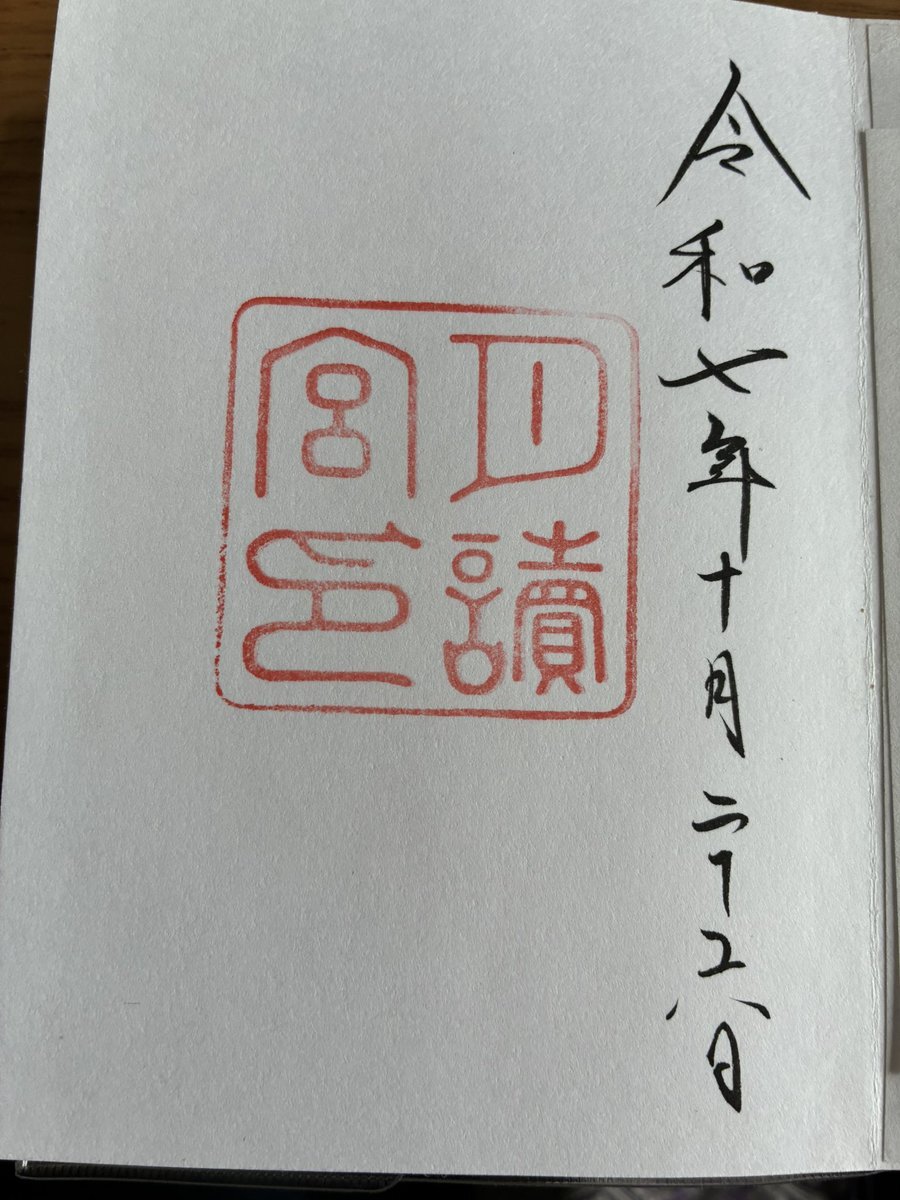 令和七年十月二十六日
月讀
宮印